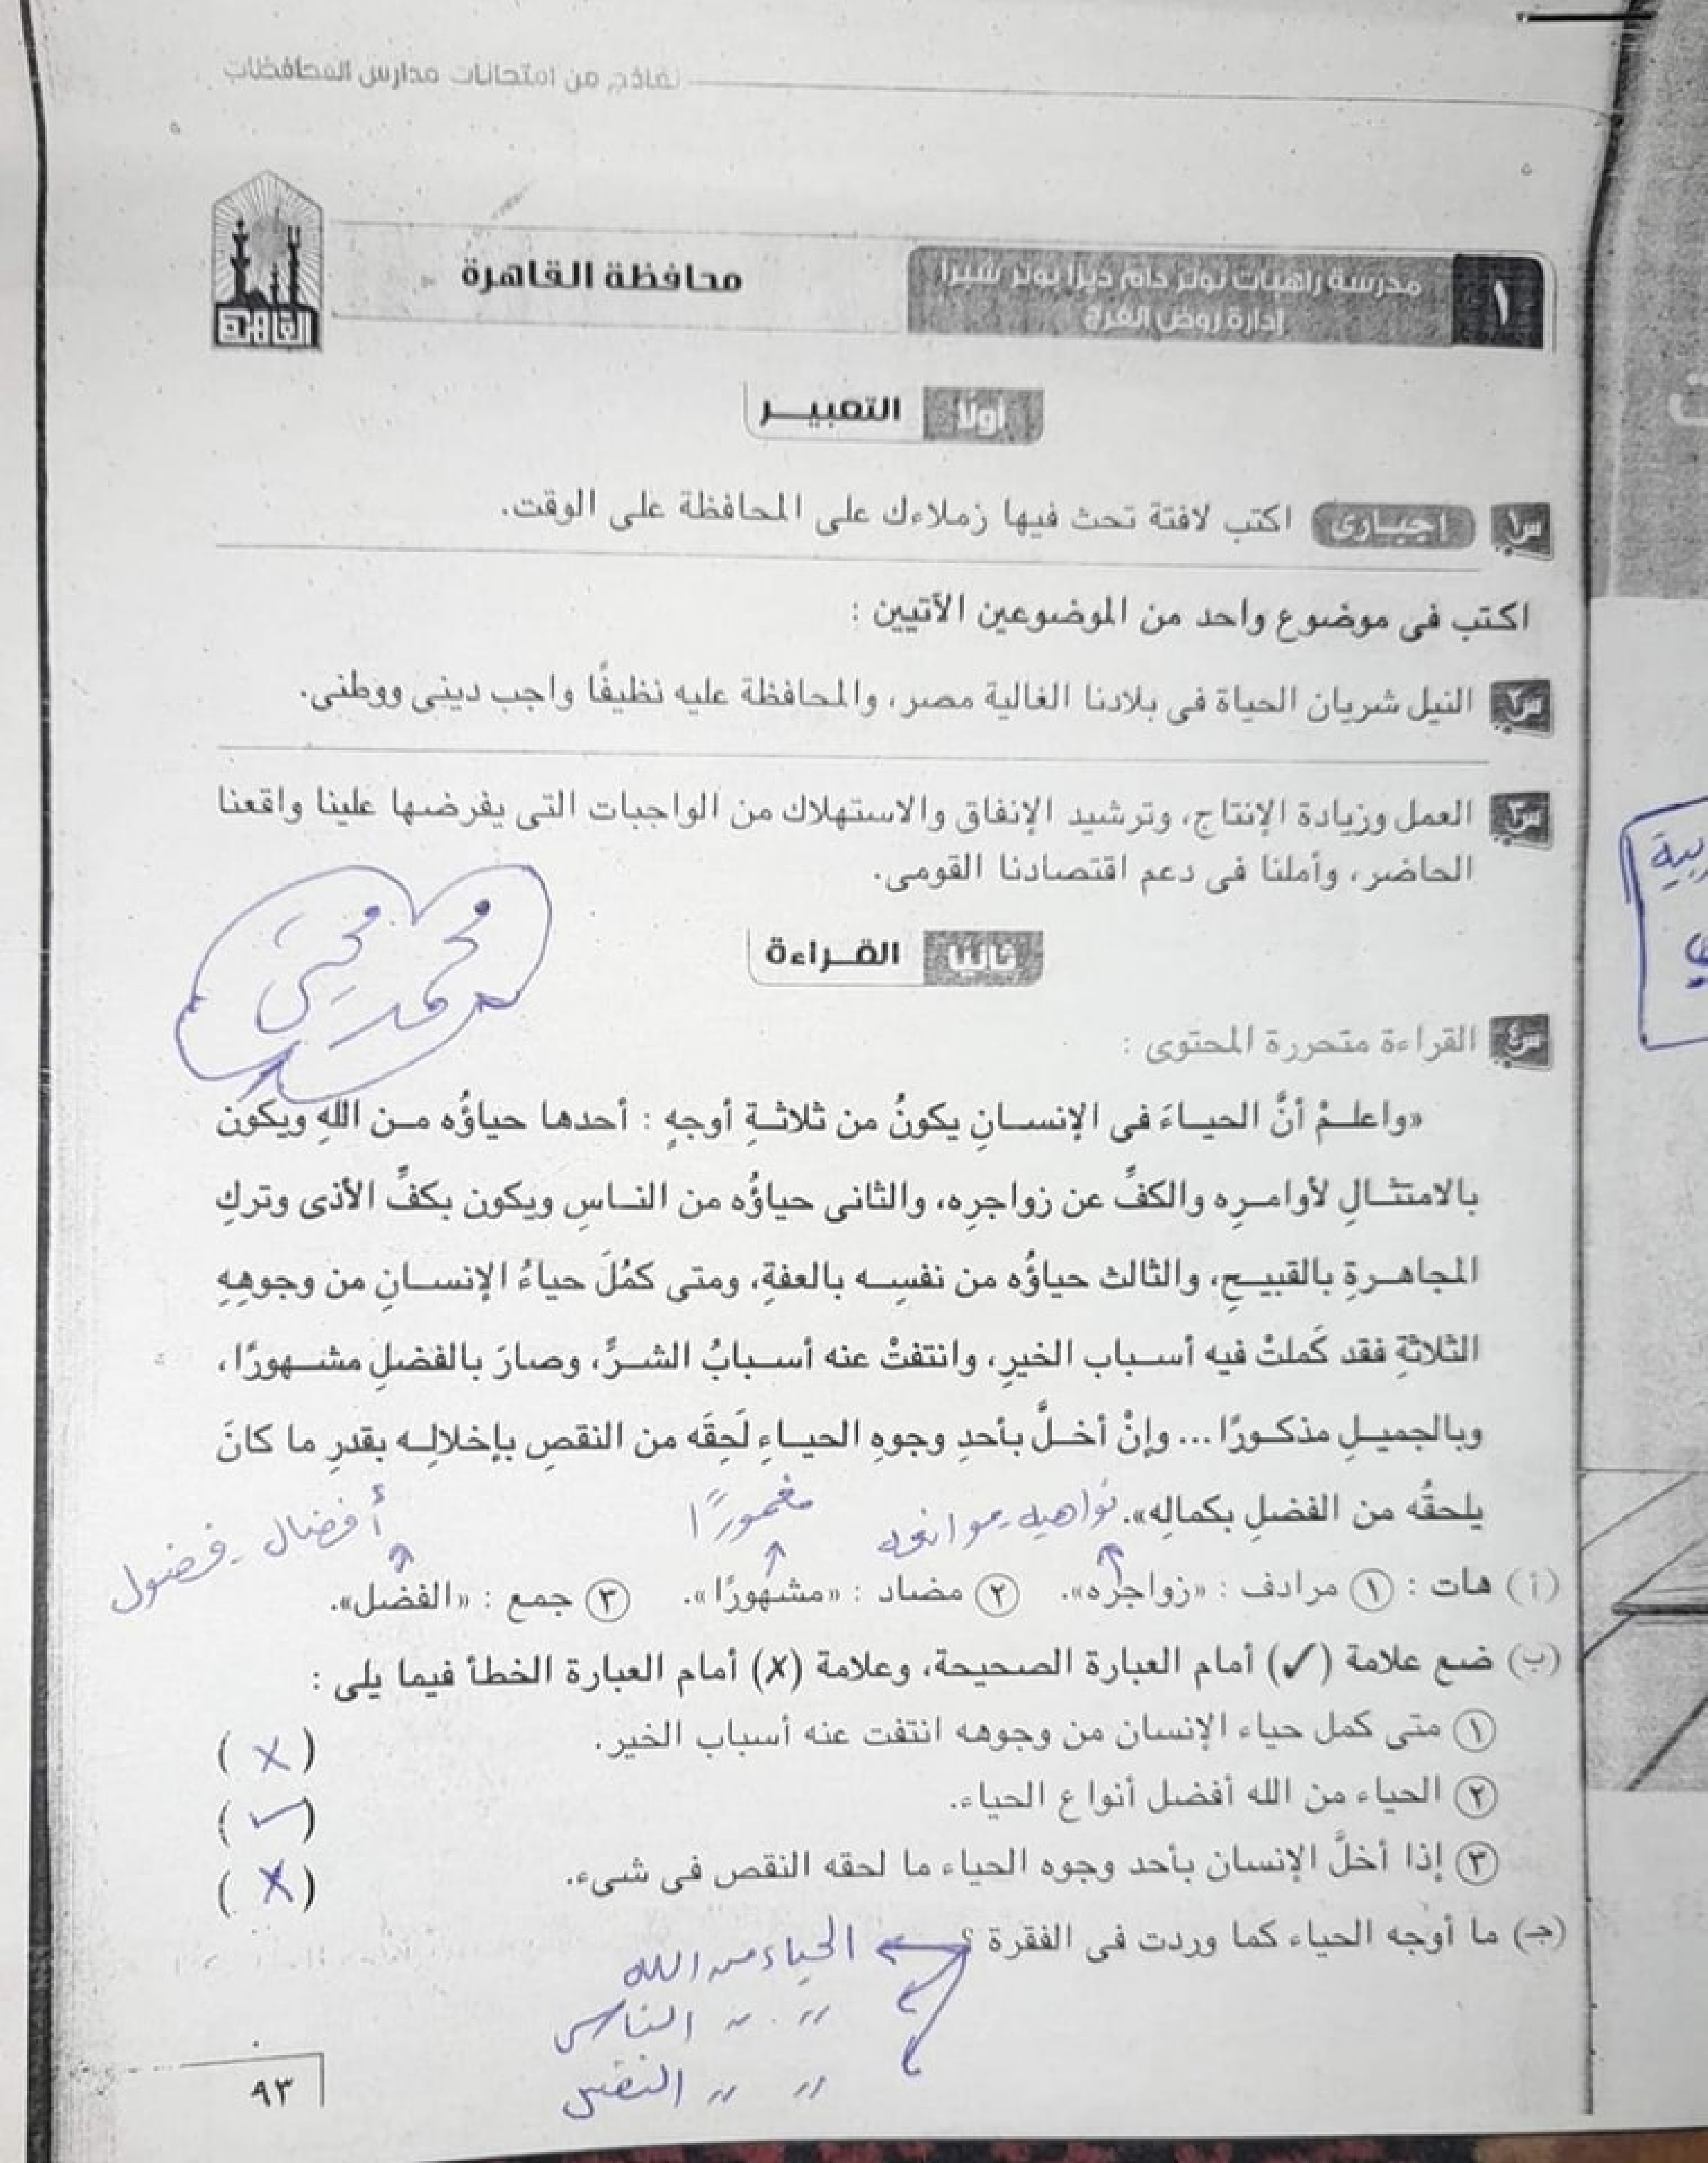 نماذج من امتحانات مدارس المحافظات
١
مدرسة راهبات نوتر دام ديزا بوتر شبرا
إدارة روض الفرج
محافظة القاهرة
القاهرة
أولا
التعبيــر
س١ إجبــارى اكتب لافتة تحث فيها زملاءك على المحافظة على الوقت.
اكتب فى موضوع واحد من الموضوعين الآتيين :
س٢ النيل شريان الحياة فى بلادنا الغالية مصر، والمحافظة عليه نظيفًا واجب دينى ووطنى.
س٣ العمل وزيادة الإنتاج، وترشيد الإنفاق والاستهلاك من الواجبات التى يفرضها علينا واقعنا
الحاضر، وأملنا فى دعم اقتصادنا القومى.
محمد محيى
ثانيا
القــراءة
س٤ القراءة متحررة المحتوى :
«واعلــمْ أنَّ الحيــاءَ فى الإنســانِ يكونُ من ثلاثــةِ أوجهٍ : أحدها حياؤُه مــن اللهِ ويكون
بالامتثــالِ لأوامــرِه والكفِّ عن زواجرِه، والثانى حياؤُه من النــاسِ ويكون بكفِّ الأذى وتركِ
المجاهــرةِ بالقبيــحِ، والثالث حياؤُه من نفسِــه بالعفةِ، ومتى كمُلَ حياءُ الإنســانِ من وجوهِهِ
الثلاثةِ فقد كَملتْ فيه أســباب الخيرِ، وانتفتْ عنه أســبابُ الشــرِّ، وصارَ بالفضلِ مشــهورًا،
وبالجميــلِ مذكــورًا ... وإنْ أخــلَّ بأحدِ وجوهِ الحيــاءِ لَحِقَه من النقصِ بإخلالِــه بقدرِ ما كانَ
يلحقُه من الفضلِ بكمالِه».
نواهيه - موانعه
مغمورًا
أفضال - فضول
(أ) هات : ١ مرادف : «زواجره». ٢ مضاد : «مشهورًا». ٣ جمع : «الفضل».
(ب) ضع علامة (✓) أمام العبارة الصحيحة، وعلامة (✗) أمام العبارة الخطأ فيما يلى :
١ متى كمل حياء الإنسان من وجوهه انتفت عنه أسباب الخير. (✗)
٢ الحياء من الله أفضل أنواع الحياء. (✓)
٣ إذا أخلَّ الإنسان بأحد وجوه الحياء ما لحقه النقص فى شىء. (✗)
(جـ) ما أوجه الحياء كما وردت فى الفقرة ؟
الحياء من الله
〃 〃 الناس
〃 〃 النفس
٩٣